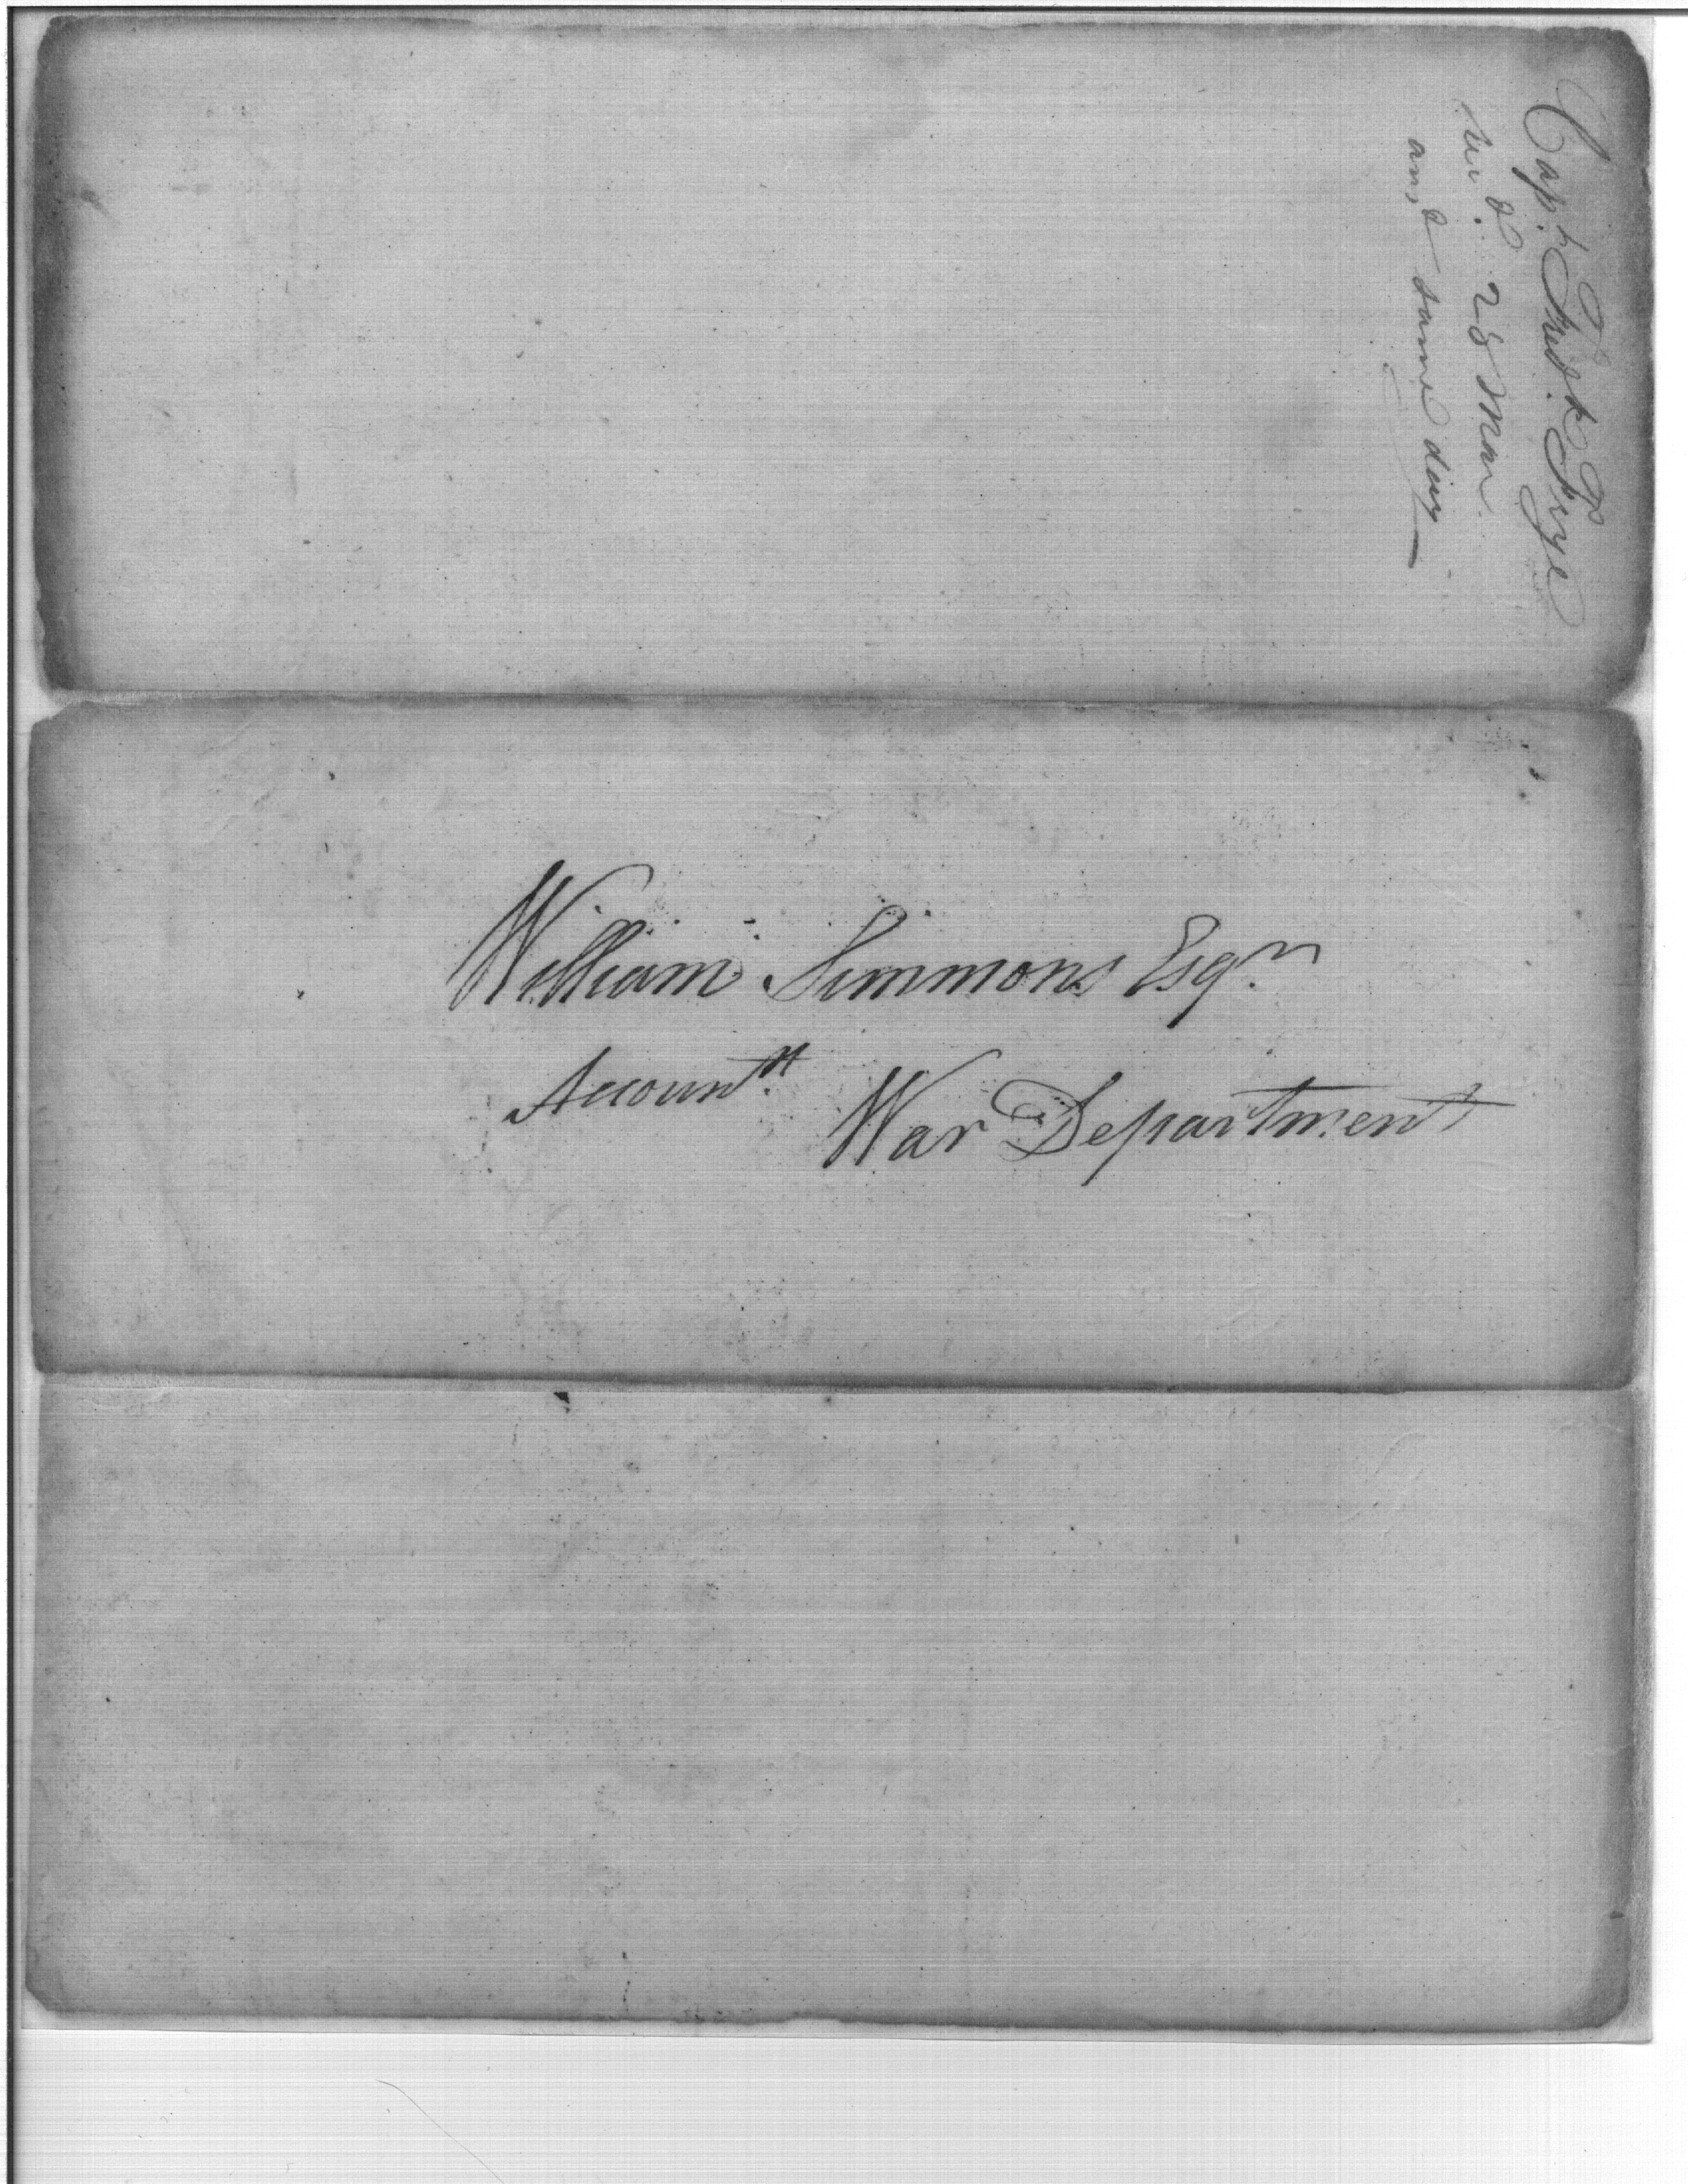 Capt. Fredk. Frye
recd. 28 Mar
ansd same day
William Simmons Esqr.
Accountt.
War Department